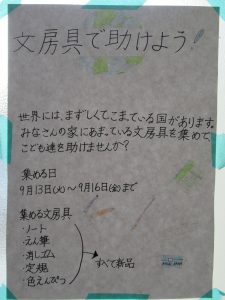 文房具で助けよう！
世界には、まずしくてこまっている国があります。
みなさんの家にあまっている文房具を集めて、
こども達を助けませんか？
集める日
9月13日(火)～9月16日(金)まで
集める文房具
・ノート
・えん筆
・消しゴム
・定規
・色えんぴつ
すべて新品